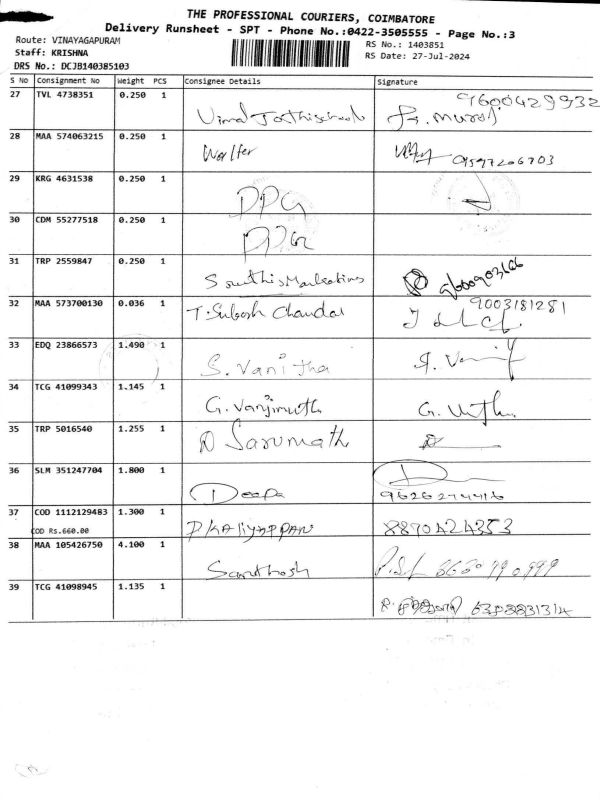 THE PROFESSIONAL COURIERS, COIMBATORE
Delivery Runsheet - SPT - Phone No.:0422-3505555 - Page No.:3
Route: VINAYAGAPURAM
RS No.: 1403851
Staff: KRISHNA
RS Date: 27-Jul-2024
DRS No.: DCJB140385103
S No Consignment No Weight PCS Consignee Details Signature
27 TVL 4738351 0.250 1 9600429932
28 MAA 574063215 0.250 1 9597206703
29 KRG 4631538 0.250 1 DPG
30 CDM 55277518 0.250 1
31 TRP 2559847 0.250 1
32 MAA 573700130 0.036 1 T. Subash Chandar 9003181281
33 EDQ 23866573 1.490 1 S. Vanitha
34 TCG 41099343 1.145 1
35 TRP 5016540 1.255 1
36 SLM 351247704 1.800 1 Deepa
37 COD 1112129483 1.300 1 P KALIYAPPAN 8870424353
COD Rs.660.00
38 MAA 105426750 4.100 1 Santhosh
39 TCG 41098945 1.135 1